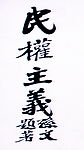 民權主義
孫文
題署